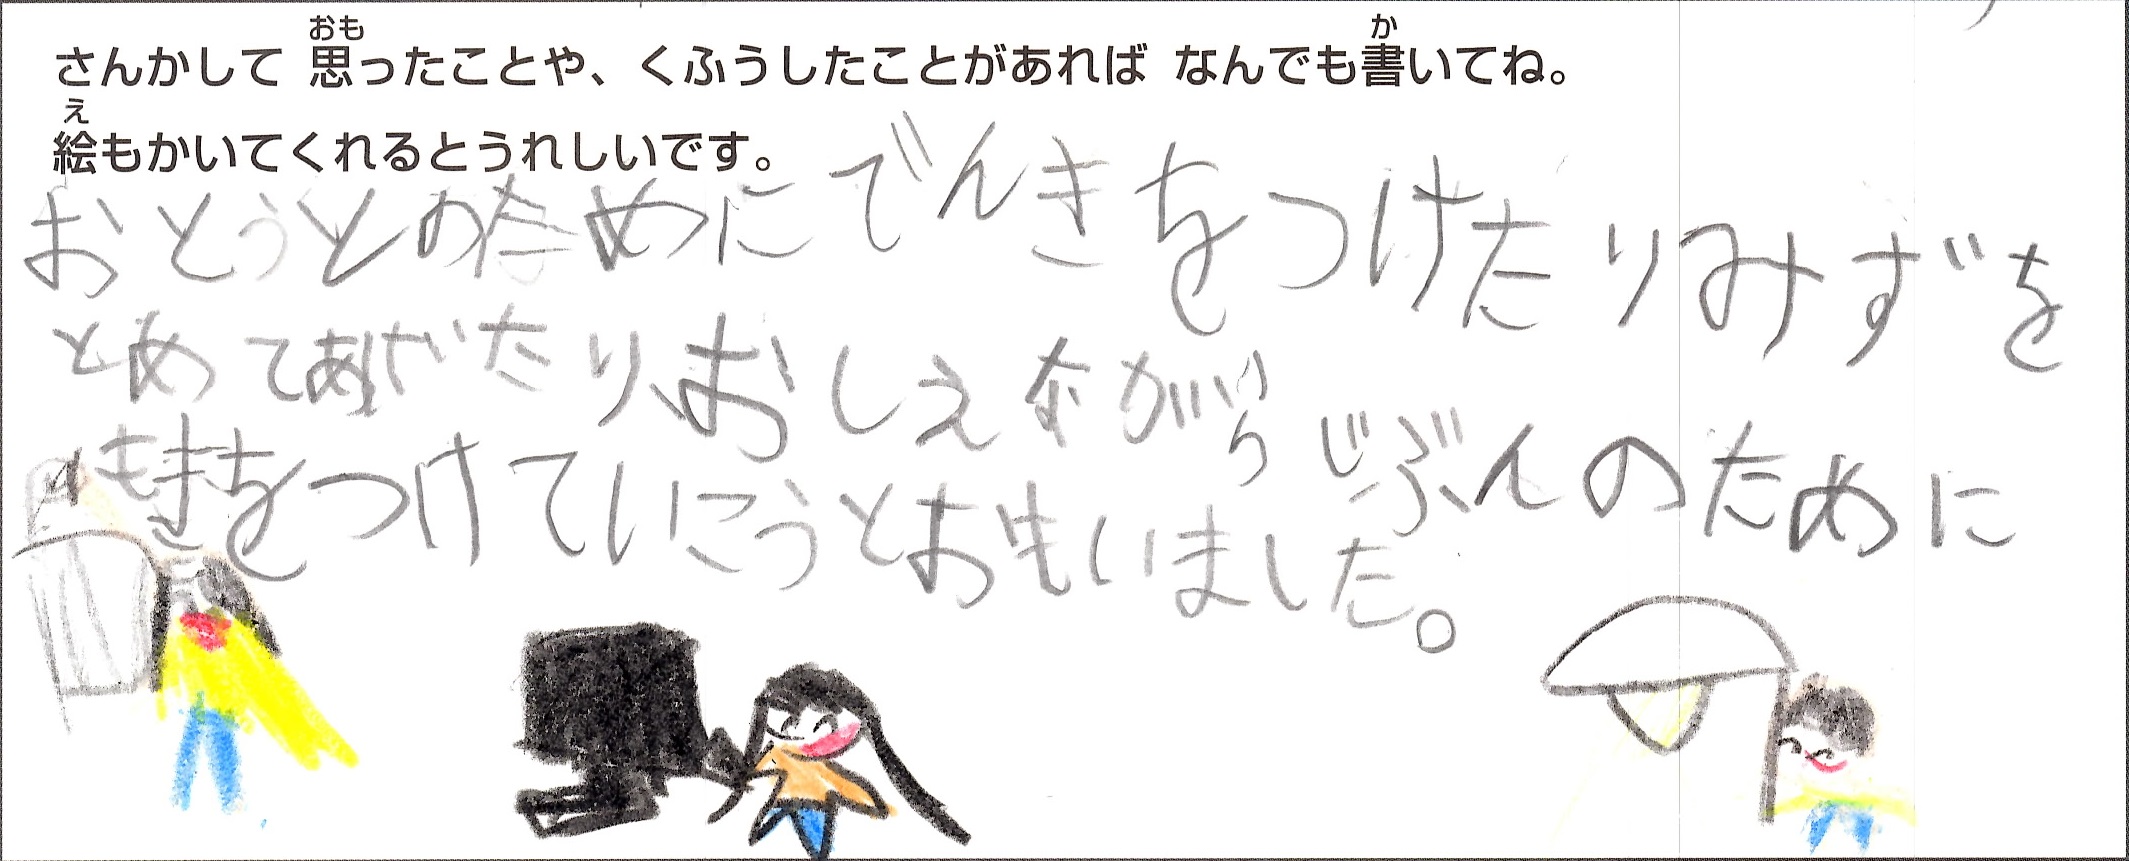 さんかして 思ったことや、くふうしたことがあれば なんでも書いてね。
絵もかいてくれるとうれしいです。
おとうとのためにでんきをつけたりみずを
とめてあげたり、おしえながらじぶんのために
もきをつけていこうとおもいました。